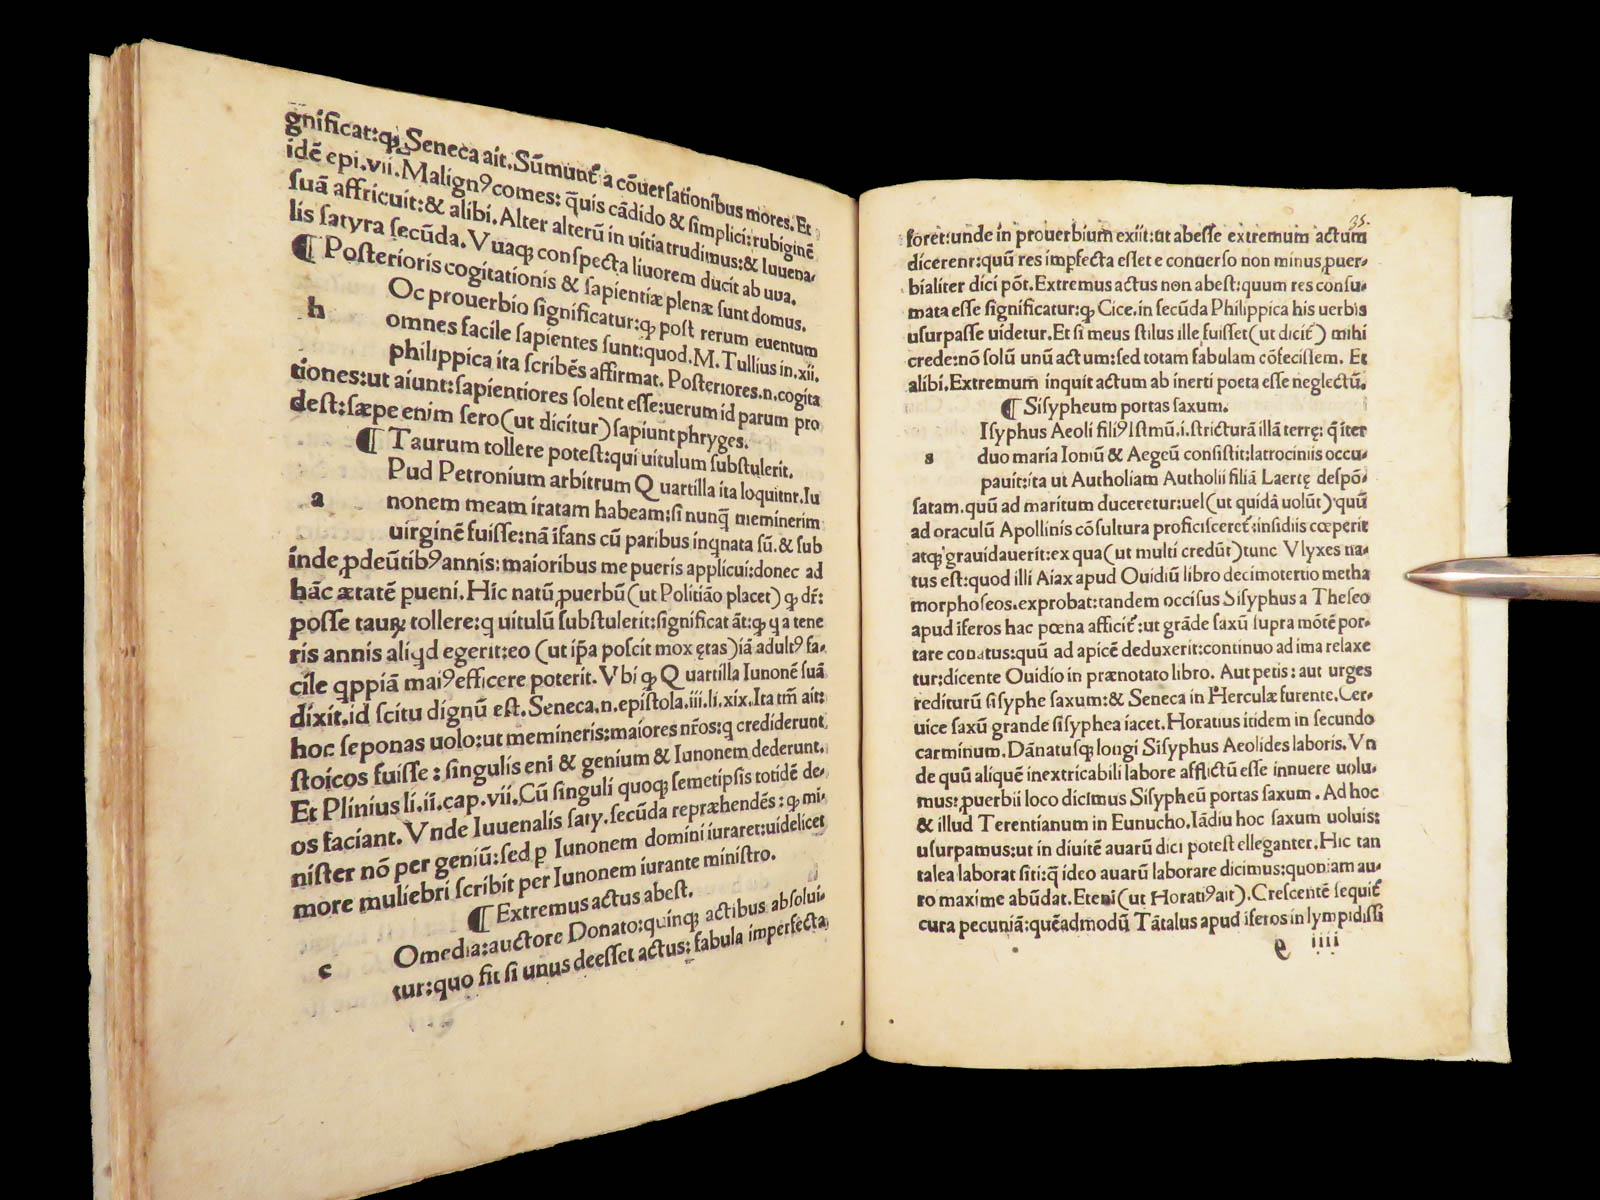 gnificat:qꝫ Seneca ait.Sũmunt̃ a cõuerſationibus mores. Et
idẽ epi.vii.Malignꝰ comes: q̃uis cãdido & ſimplici:rubiginẽ
ſuã affricuit:& alibi.Alter alterũ in uitia trudimus:& Iuuena-
lis ſatyra ſecũda. Vuaqꝫ conſpecta liuorem ducit ab uua.
¶ Poſterioris cogitationis & ſapientiæ plenæ ſunt domus.
h Oc prouerbio ſignificatur:qꝫ poſt rerum euentum
omnes facile ſapientes ſunt:quod.M.Tullius in.xii.
philippica ita ſcribẽs affirmat. Poſteriores.n.cogita
tiones:ut aiunt:ſapientiores ſolent eſſe:uerum id parum pro
deſt:ſæpe enim ſero(ut dicitur)ſapiunt phryges.
¶ Taurum tollere poteſt:qui uitulum ſubſtulerit.
a Pud Petronium arbitrum Quartilla ita loquitur.Iu
nonem meam iratam habeam:ſi nunq̃ meminerim
uirginẽ fuiſſe:nã ĩfans cũ paribus inqnata sũ.& ſub
inde ꝓdeũtibꝰ annis:maioribus me pueris applicui:donec ad
hãc ætatẽ pueni.Hic natũ ꝓuerbũ(ut Politião placet) qꝫ dr̃:
poſſe tauꝝ tollere:q uitulũ ſubſtulerit:ſignificat ãt:qꝫ q a tene
ris annis aliqd egerit:eo (ut ip̃a poſcit mox ętas)iã adultꝰ fa-
cile qppiã maiꝰ efficere poterit.Vbi qꝫ Quartilla Iunonẽ ſuã
dixit.id ſcitu dignũ eſt.Seneca.n.epiſtola.iii.li.xix.Ita tm̃ ait:
hoc ſeponas uolo:ut memineris:maiores nr̃os:q crediderunt
ſtoicos fuiſſe: ſingulis eni & genium & Iunonem dederunt.
Et Plinius li.ii.cap.vii.Cũ ſinguli quoqꝫ ſemetipſis totidẽ de-
os faciant. Vnde Iuuenalis ſaty.ſecũda repræhendẽs: qꝫ mi-
niſter nõ per geniũ:ſed ꝑ Iunonem domini iuraret:uidelicet
more muliebri ſcribit per Iunonem iurante miniſtro.
¶ Extremus actus abeſt.
c Omedia:auctore Donato:quinqꝫ actibus abſolui-
tur:quo fit ſi unus deeſſet actus: fabula imperfecta
35.
foret:unde in prouerbium exiit:ut abeſſe extremum actum
dicerent:quũ res impfecta eſſet e conuerſo non minus ꝓuer-
bialiter dici põt.Extremus actus non abeſt:quum res conſu-
mata eſſe ſignificatur:qꝫ Cice.in ſecũda Philippica his uerbis
uſurpaſſe uidetur.Et ſi meus ſtilus ille fuiſſet(ut dicit̃) mihi
crede:nõ ſolũ unũ actum:ſed totam fabulam cõfeciſſem. Et
alibi.Extremum inquit actum ab inerti poeta eſſe neglectũ.
¶ Siſypheum portas ſaxum.
s Iſyphus Aeoli filiꝰ Iſtmũ.i.ſtricturã illã terrę: q̃ iter
duo maria Ioniũ & Aegeũ conſiſtit:latrociniis occu-
pauit:ita ut Autholiam Autholii filiã Laertę deſpõ-
ſatam.quũ ad maritum duceretur:uel(ut quidã uolũt) quũ
ad oraculũ Apollinis cõſultura proficiſceret̃:inſidiis cœperit
atqꝫ grauidauerit:ex qua(ut multi credũt)tunc Vlyxes na-
tus eſt:quod illi Aiax apud Ouidiũ libro decimotertio metha
morphoſeos.exprobat:tandem occiſus Siſyphus a Theſeo
apud ĩferos hac pœna afficit̃:ut grãde ſaxũ ſupra mõtẽ por-
tare conatus:quũ ad apicẽ deduxerit:continuo ad ima relaxe
tur:dicente Ouidio in prænotato libro. Aut petis: aut urges
rediturũ ſiſyphe ſaxum:& Seneca in Herculæ furente.Cer-
uice ſaxũ grande ſiſyphea iacet.Horatius itidem in ſecundo
carminum.Dãnatuſqꝫ longi Siſyphus Aeolides laboris.Vn
de quũ aliquẽ inextricabili labore afflictũ eſſe innuere uolu-
mus:ꝓuerbii loco dicimus Siſypheũ portas ſaxum. Ad hoc
& illud Terentianum in Eunucho.Iãdiu hoc ſaxum uoluis:
uſurpamus:ut in diuitẽ auarũ dici poteſt elleganter.Hic tan
talea laborat ſiti:q̃ ideo auarũ laborare dicimus:quoniam au-
ro maxime abũdat.Etenĩ(ut Horatiꝰ ait).Creſcentẽ ſequit̃
cura pecuniã:quẽadmodũ Tãtalus apud ĩferos in lympidiſſi
e iiii